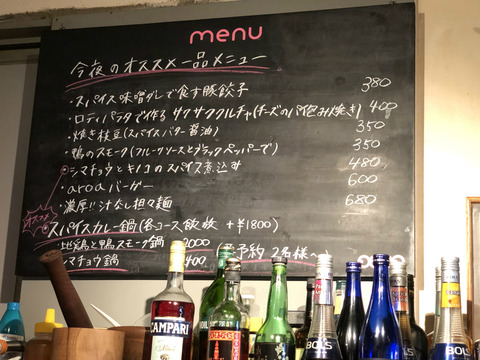 menu
今夜のオススメ一品メニュー
・スパイス味噌ダレで食す豚餃子 380
・ロティパラタで作るサクサククルチャ(チーズのパイ包み焼き) 400
・焼き枝豆(スパイスバター醤油) 350
・鴨のスモーク(フルーツソースとブラックペッパーで) 350
・シマチョウとキノコのスパイス煮込み 480
・aroaバーガー 600
・濃厚!!汁なし担々麺 680
オススメ
スパイスカレー鍋(各コース飲放 +¥1800)
地鶏と鴨スモーク鍋 2000 (予約 2名様〜)
シマチョウ鍋 400
CAMPARI
BOLS
BOLS